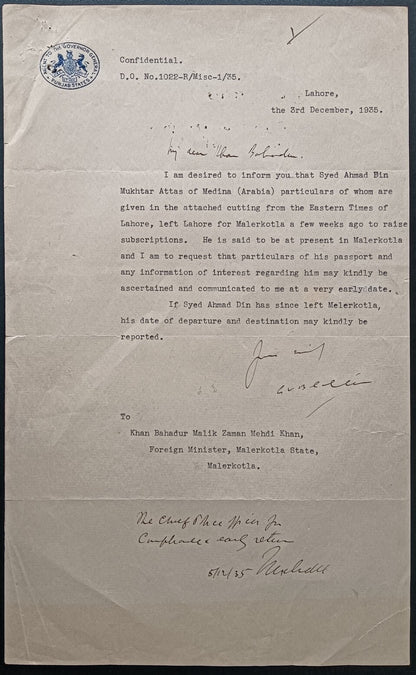 AGENT TO THE GOVERNOR GENERAL
PUNJAB STATES
Confidential.
D.O. No.1022-R/Misc-1/35.
Lahore,
the 3rd December, 1935.
My dear Khan Bahadur.
I am desired to inform you that Syed Ahmad Bin
Mukhtar Attas of Medina (Arabia) particulars of whom are
given in the attached cutting from the Eastern Times of
Lahore, left Lahore for Malerkotla a few weeks ago to raise
subscriptions. He is said to be at present in Malerkotla
and I am to request that particulars of his passport and
any information of interest regarding him may kindly be
ascertained and communicated to me at a very early date.
If Syed Ahmad Din has since left Melerkotla,
his date of departure and destination may kindly be
reported.
To
Khan Bahadur Malik Zaman Mehdi Khan,
Foreign Minister, Malerkotla State,
Malerkotla.
The Chief Police Officer for
Compliance & early return
5/12/35